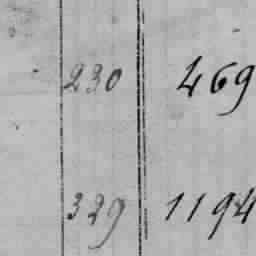 230 469
329 1194